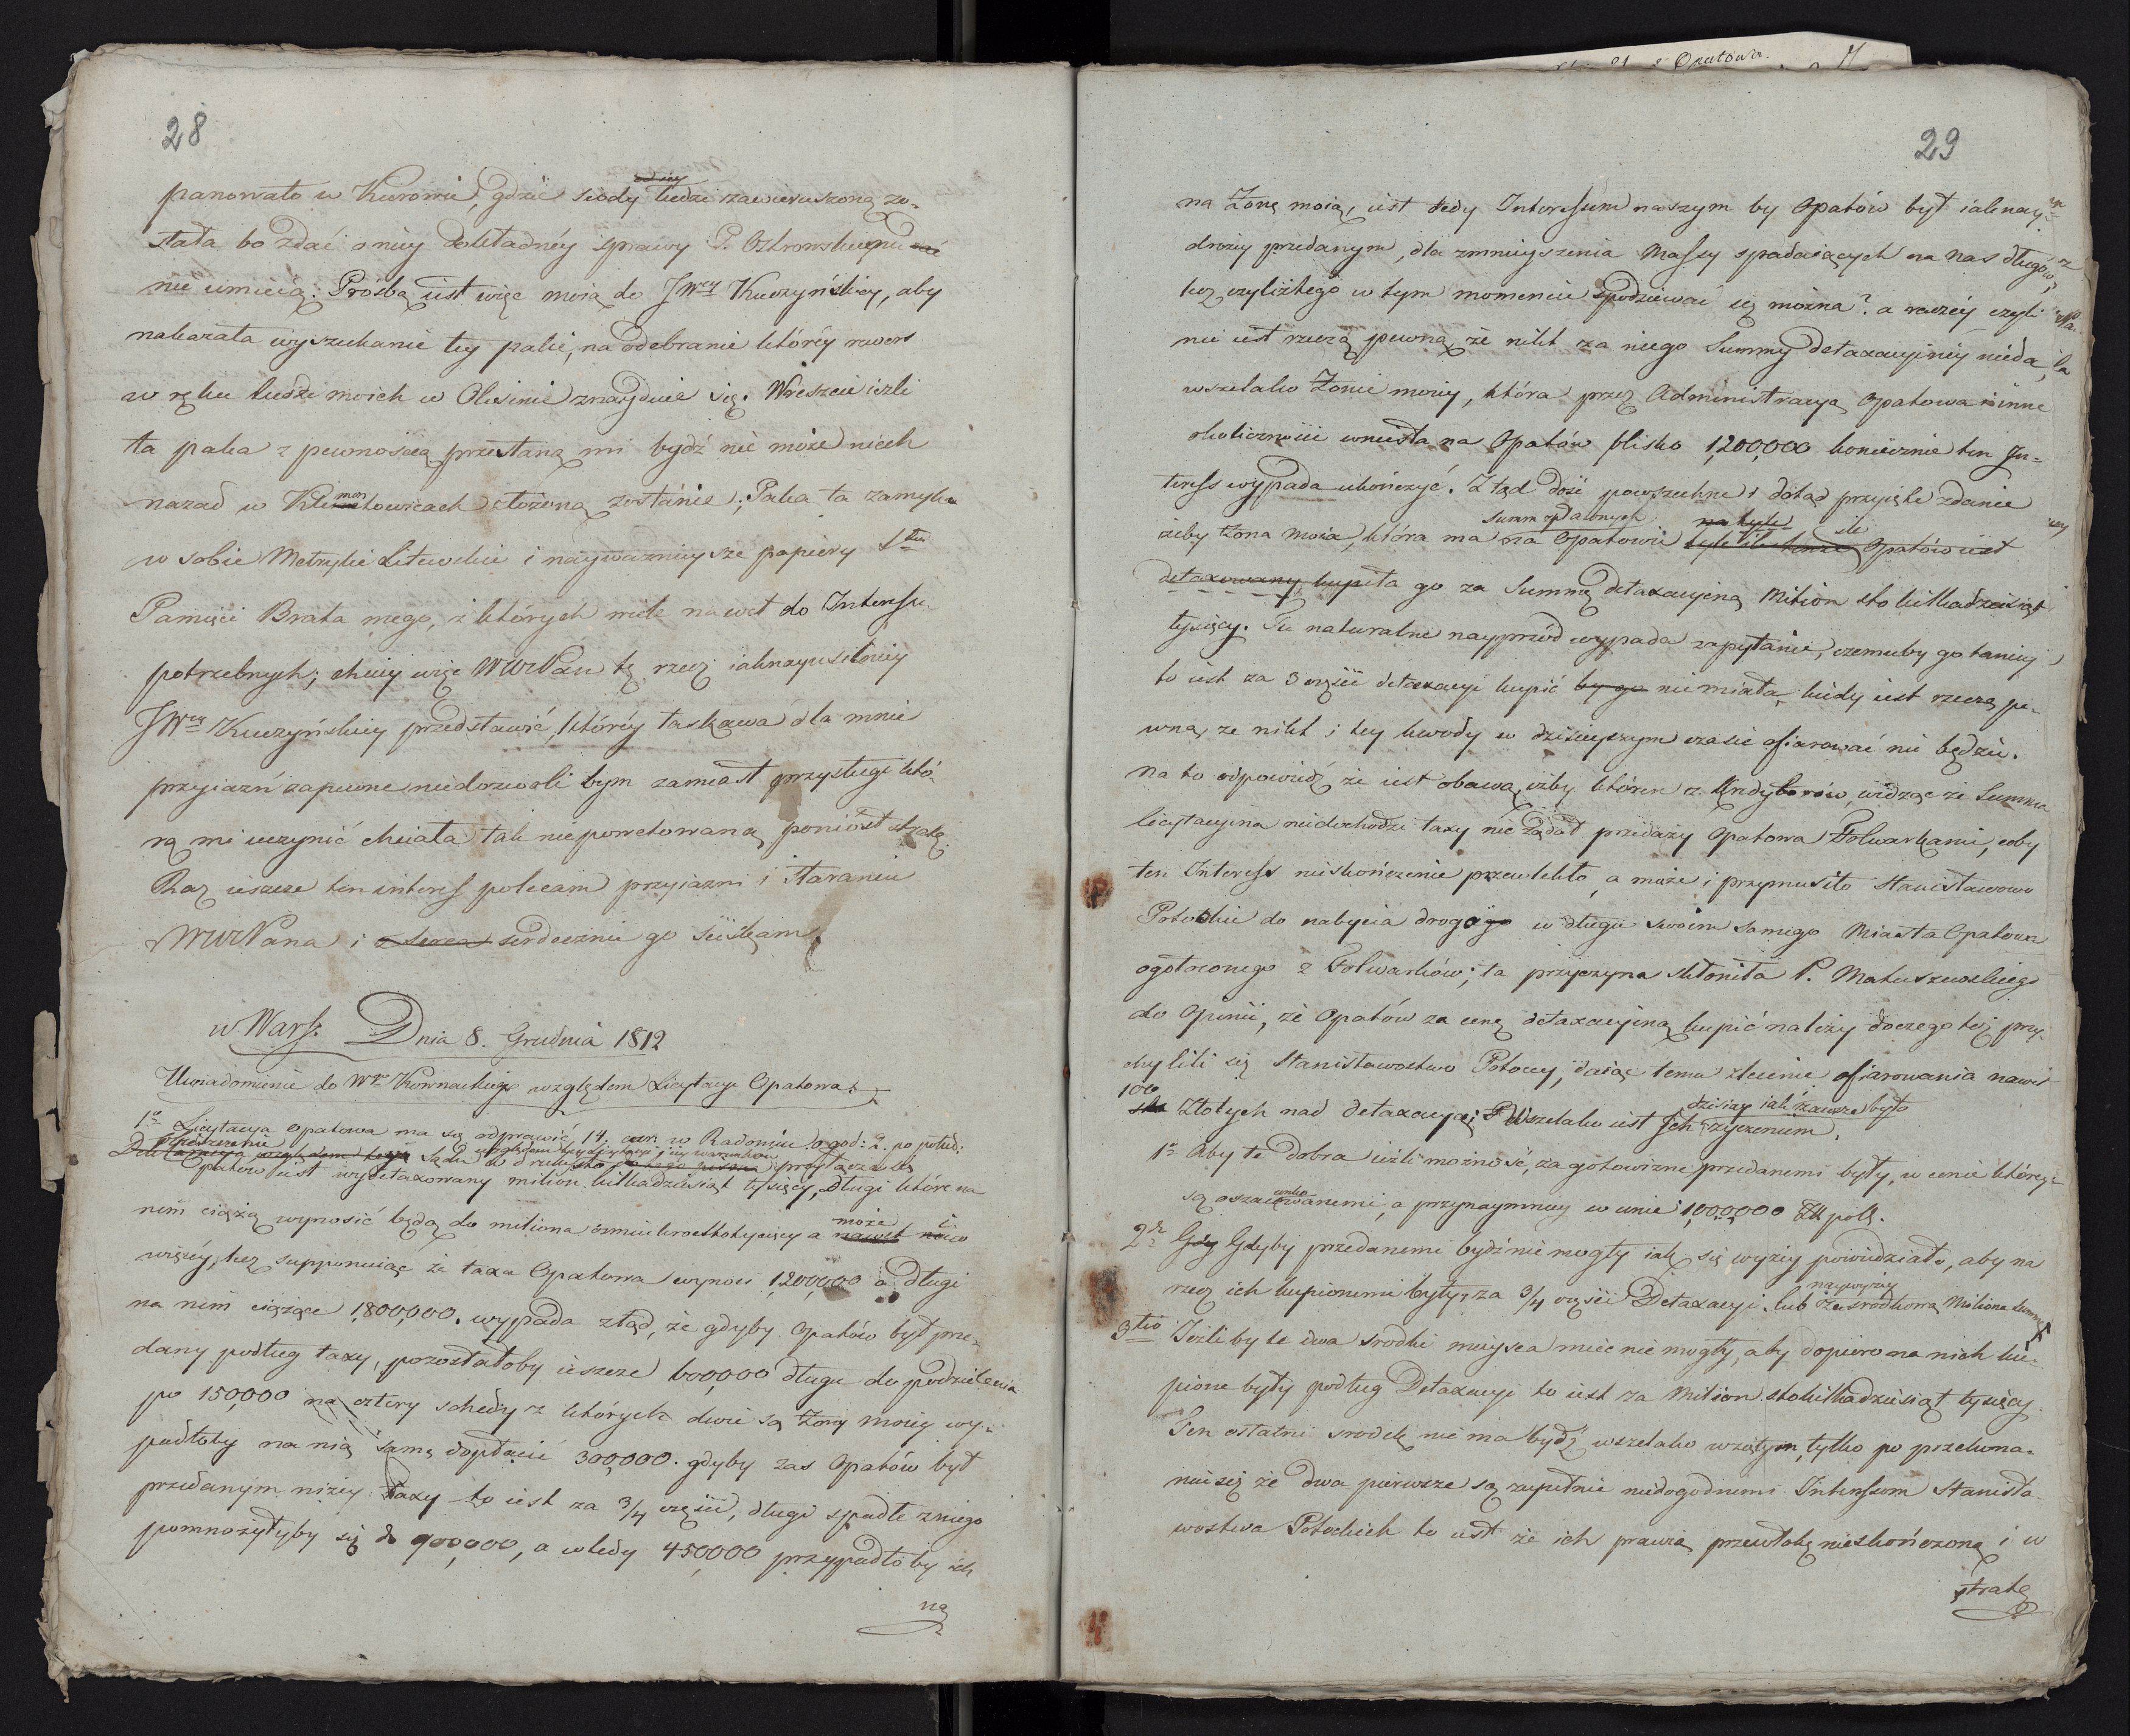 28
panowało w Kurowie, gdzie scody ludzi zawieruszoną zo-
stała bo zdać o niey dokładnéy sprawy P. Ostrowskiemu
nie umieią. Prośbą iest więc moią do JWney Kuczyńskiey, aby
nakazała wyszukanie tey paki, na odebranie któréy rewers
w ręku ludzi moich w Olesinie znayduie się. Wreszcie ieżli
ta paka z pewnością przesłaną mi bydź nie może niech
nazad w Klementowicach złożoną zostánie. Paka ta zamyka
w sobie Metryki Litewskie i nayważnieysze papiery S
Pamięci Brata mego, z których wiele nawet do Interessu
potrzebnych; chciey więc WWPan tę rzecz iaknayusilniey
JWney Kuczyńskiey przedstawić, któréy łaskawa dla mnie
przyiaźń zapewne niedozwoli bym zamiast przysługi któ-
rą mi uczynić chciała tak niepowetowaną poniósł stratę.
Raz ieszcze ten interess polecam przyiazni i staraniu
WWPana i z serca serdecznie go ściskam.
w Warsz. Dnia 8. Grudnia 1812
Uwiadomienie do Wgo Kownackiego względem Licytacyi Opatowa.
1o Licytacya Opatowa ma się odprawić 14. curr. w Radomiu o god: 2. po połud:
Sądu do druku
Opatow iest wydetaxowany milion kilkadziesiąt tysięcy, Długi które na
nim ciążą wynosić będą do miliona ośmiukroćstotysięcy a nawet może i
więcéy, lecz supponuiąc że taxa Opatowa wynosi 1,200,000 a długi
na nim ciążące 1,800,000. wypada ztąd, że gdyby Opatów był prze-
dany podług taxy, pozostałoby ieszcze 600,000 długu do podzielenia
po 150,000 na cztery schedy z których dwie są Żony moiey wy-
padłoby na nią samą dopłacić 300,000. gdyby zas Opatów był
przedanym niżey taxy to iest za 3/4 części, długi spadłe z niego
pomnożyłyby się do 900,000, a wtedy 450,000 przypadłoby ich
na
29
na Żonę moią, iest tedy Interessem naszym by Opatów był iaknay-
drożey przedanym, dla zmnieyszenia Massy spadaiących na nas długów,
lecz czyliżtego w tym momencie spodziewać się można? a raczéy czyli
nie iest rzeczą pewną że nikt za niego Summy detaxacyiney nieda,
wszelako Żonie moiey, która przez Administracyę Opatowa i inne
okoliczności wniosła na Opatów blisko 1,200,000 koniecznie ten In-
teress wypada ukończyć. Ztąd dość powszechne i dotąd przyięte zdanie
summ opłaconych na tyle ile
żeby Żona moia, która ma na Opatowie Opatów iest
detaxowany kupiła go za Summę detaxacyiną Milion sto kilkadziesiąt
tysięcy. Tu naturalne nayprzód wypada zapytanie, czemuby go taniey
to iest za 3 części detaxacyi kupić by go niemiała, kiedy iest rzeczą pe-
wną, że nikt i tey kwody w dzisieyszym czasie ofiarować nie będzie.
na to odpowiedź że iest obawa, żeby któren z Kredytorów, widząc że Summa
licytacyina niedochodzi taxy nie żądał przedaży Opatowa Folwarkami, coby
ten Interess nieskończenie przewlekło, a może i przymusiło Stanisławowę
Potockie do nabycia drogo w długu swoim samego Miasta Opatowa
ogołoconego z Folwarków; ta przyczyna skłoniła P. Matuszewskiego
do Opinii, że Opatów za cenę detaxacyiną kupić należy doczego też przy-
chylili się Stanisławostwo Potoccy, daiąc temu zlecenie ofiarowania nawet
100 dzisiay iak zawsze było
sto Złotych nad detaxacyą; Wszelako iest Ich życzeniem.
1o Aby te dobra ieżli można, za gotowiznę przedanemi były, w cenie którey
są oszacowanemi, a przynaymniey w cenie 1,000,000 Zł pols.
2do Gdy Gdyby przedanemi bydź nie mogły iak się wyżey powiedziało, aby na
naywyżey
rzecz ich kupionemi były, za 3/4 części Detaxacyi. lub za srodkową Miliona summę
3tio Ieżliby te dwa srodki mieysca mieć nie mogły, aby dopiero na nich ku-
pione były podług Detaxacyi to iest za Milion stokilkadziesiąt tysięcy.
Ten ostatni srodek nie ma bydź wszelako wziętym, tylko po przekona-
niu się że dwa pierwsze są zupełnie niedogodnemi Interessom Stanisła-
wostwa Potockich to iest że ich prawią przewłokę nieskończoną i w
stratę
Opatowa.